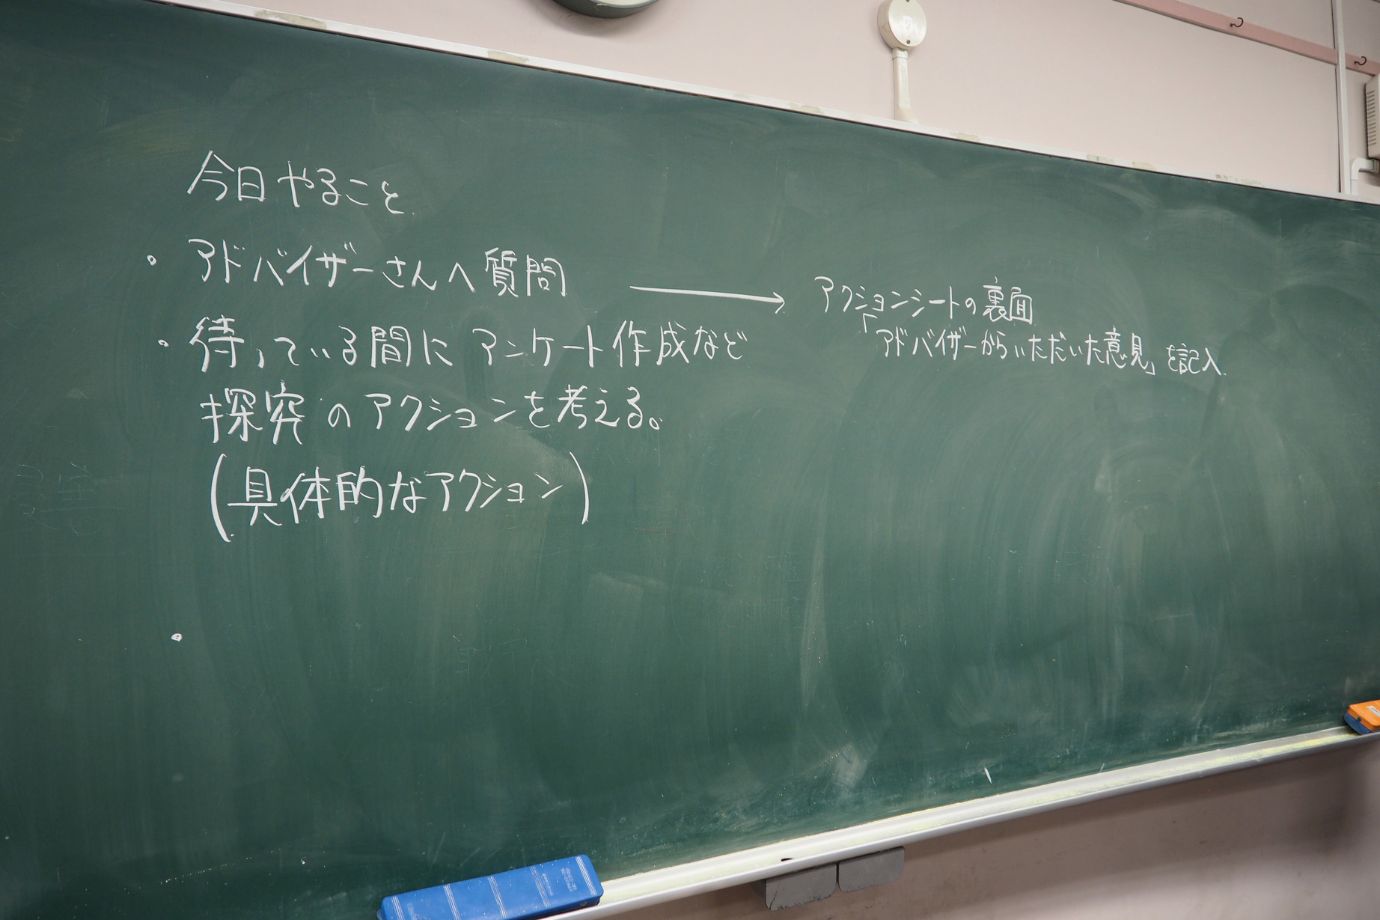 今日やること
・アドバイザーさんへ質問 → アクションシートの裏面
「アドバイザーからいただいた意見」を記入
・待っている間にアンケート作成など
探究のアクションを考える。
(具体的なアクション)